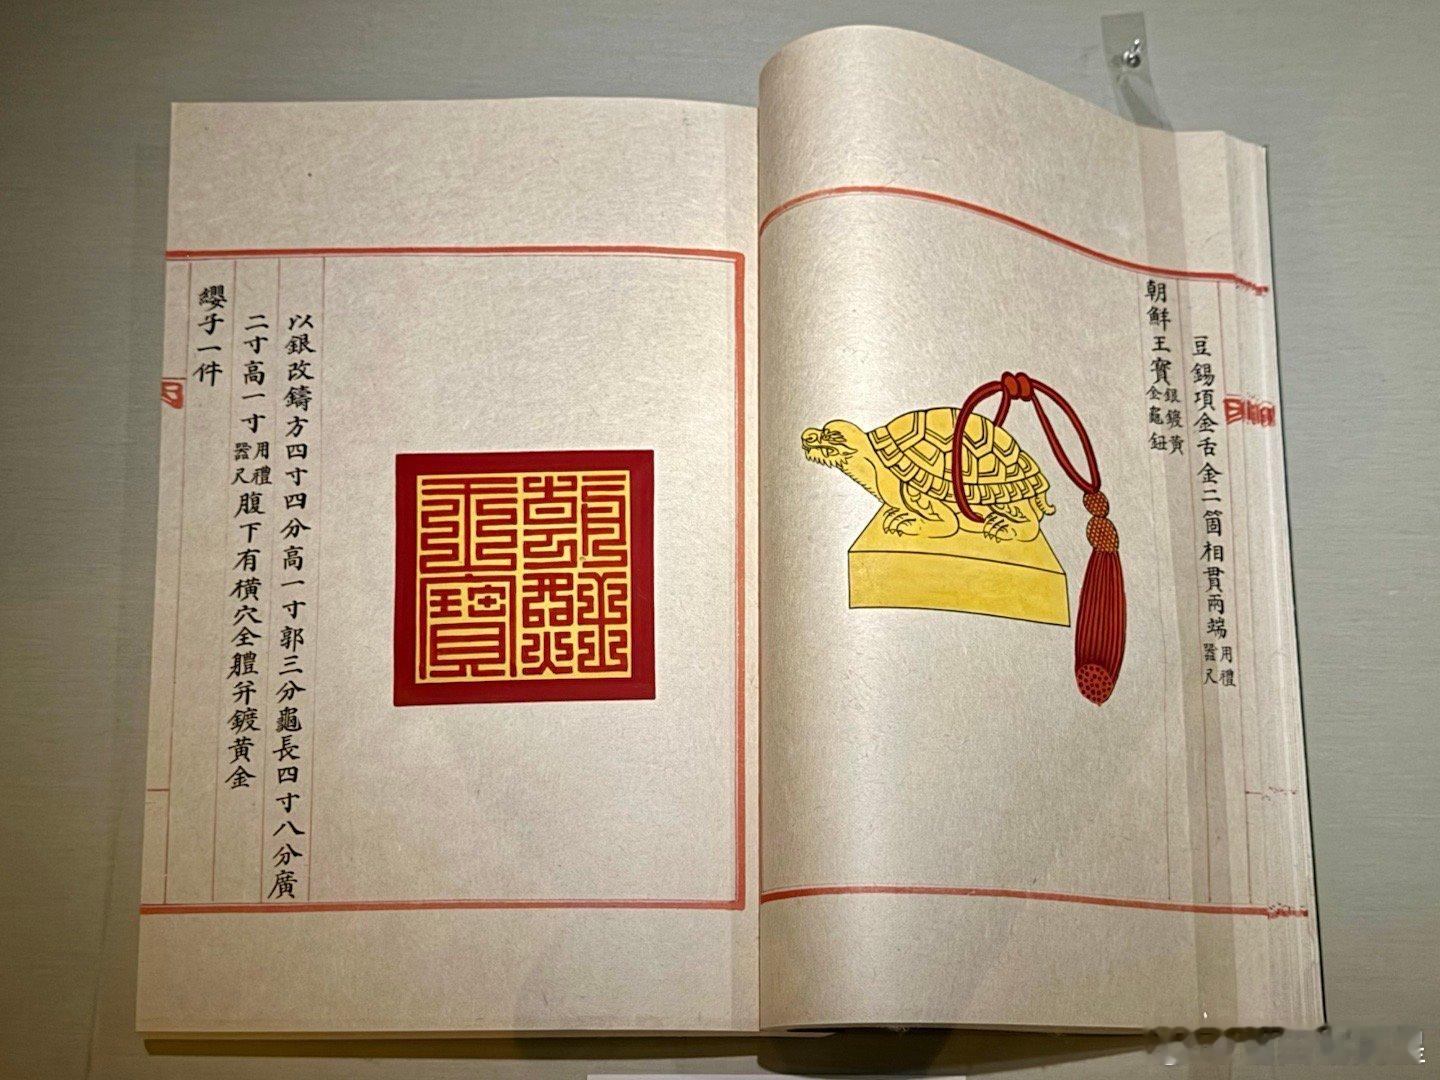 豆錫項金舌金二箇相貫兩端用禮器尺
朝鮮王寶銀鍍黃金龜鈕
朝鮮王寶
以銀改鑄方四寸四分高一寸郭三分龜長四寸八分廣
二寸高一寸用禮器尺腹下有橫穴全體并鍍黃金
纓子一件